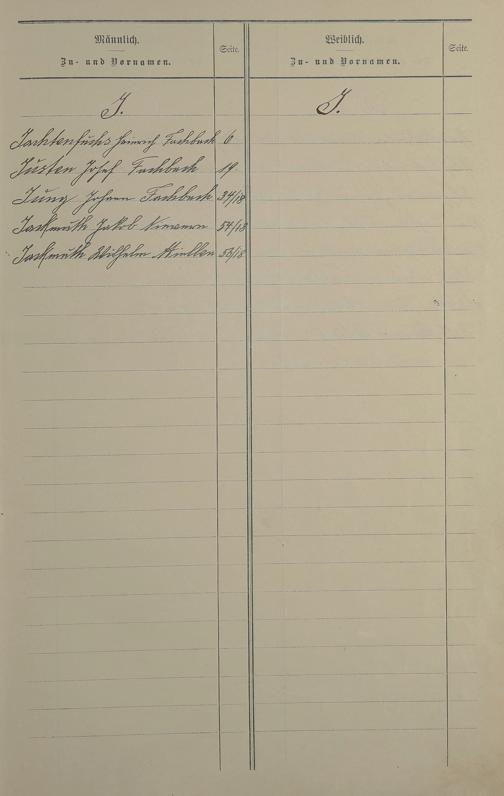 Männlich.
Zu- und Vornamen.
Seite.
Weiblich.
Zu- und Vornamen.
Seite.
J.
J.
Jachtenfuchs Heinrich Fachbach 6
Justen Josef Fachbach 19
Jung Johann Fachbach 34/18
Jakob Nievern 54/18
Wilhelm Miellen 58/18